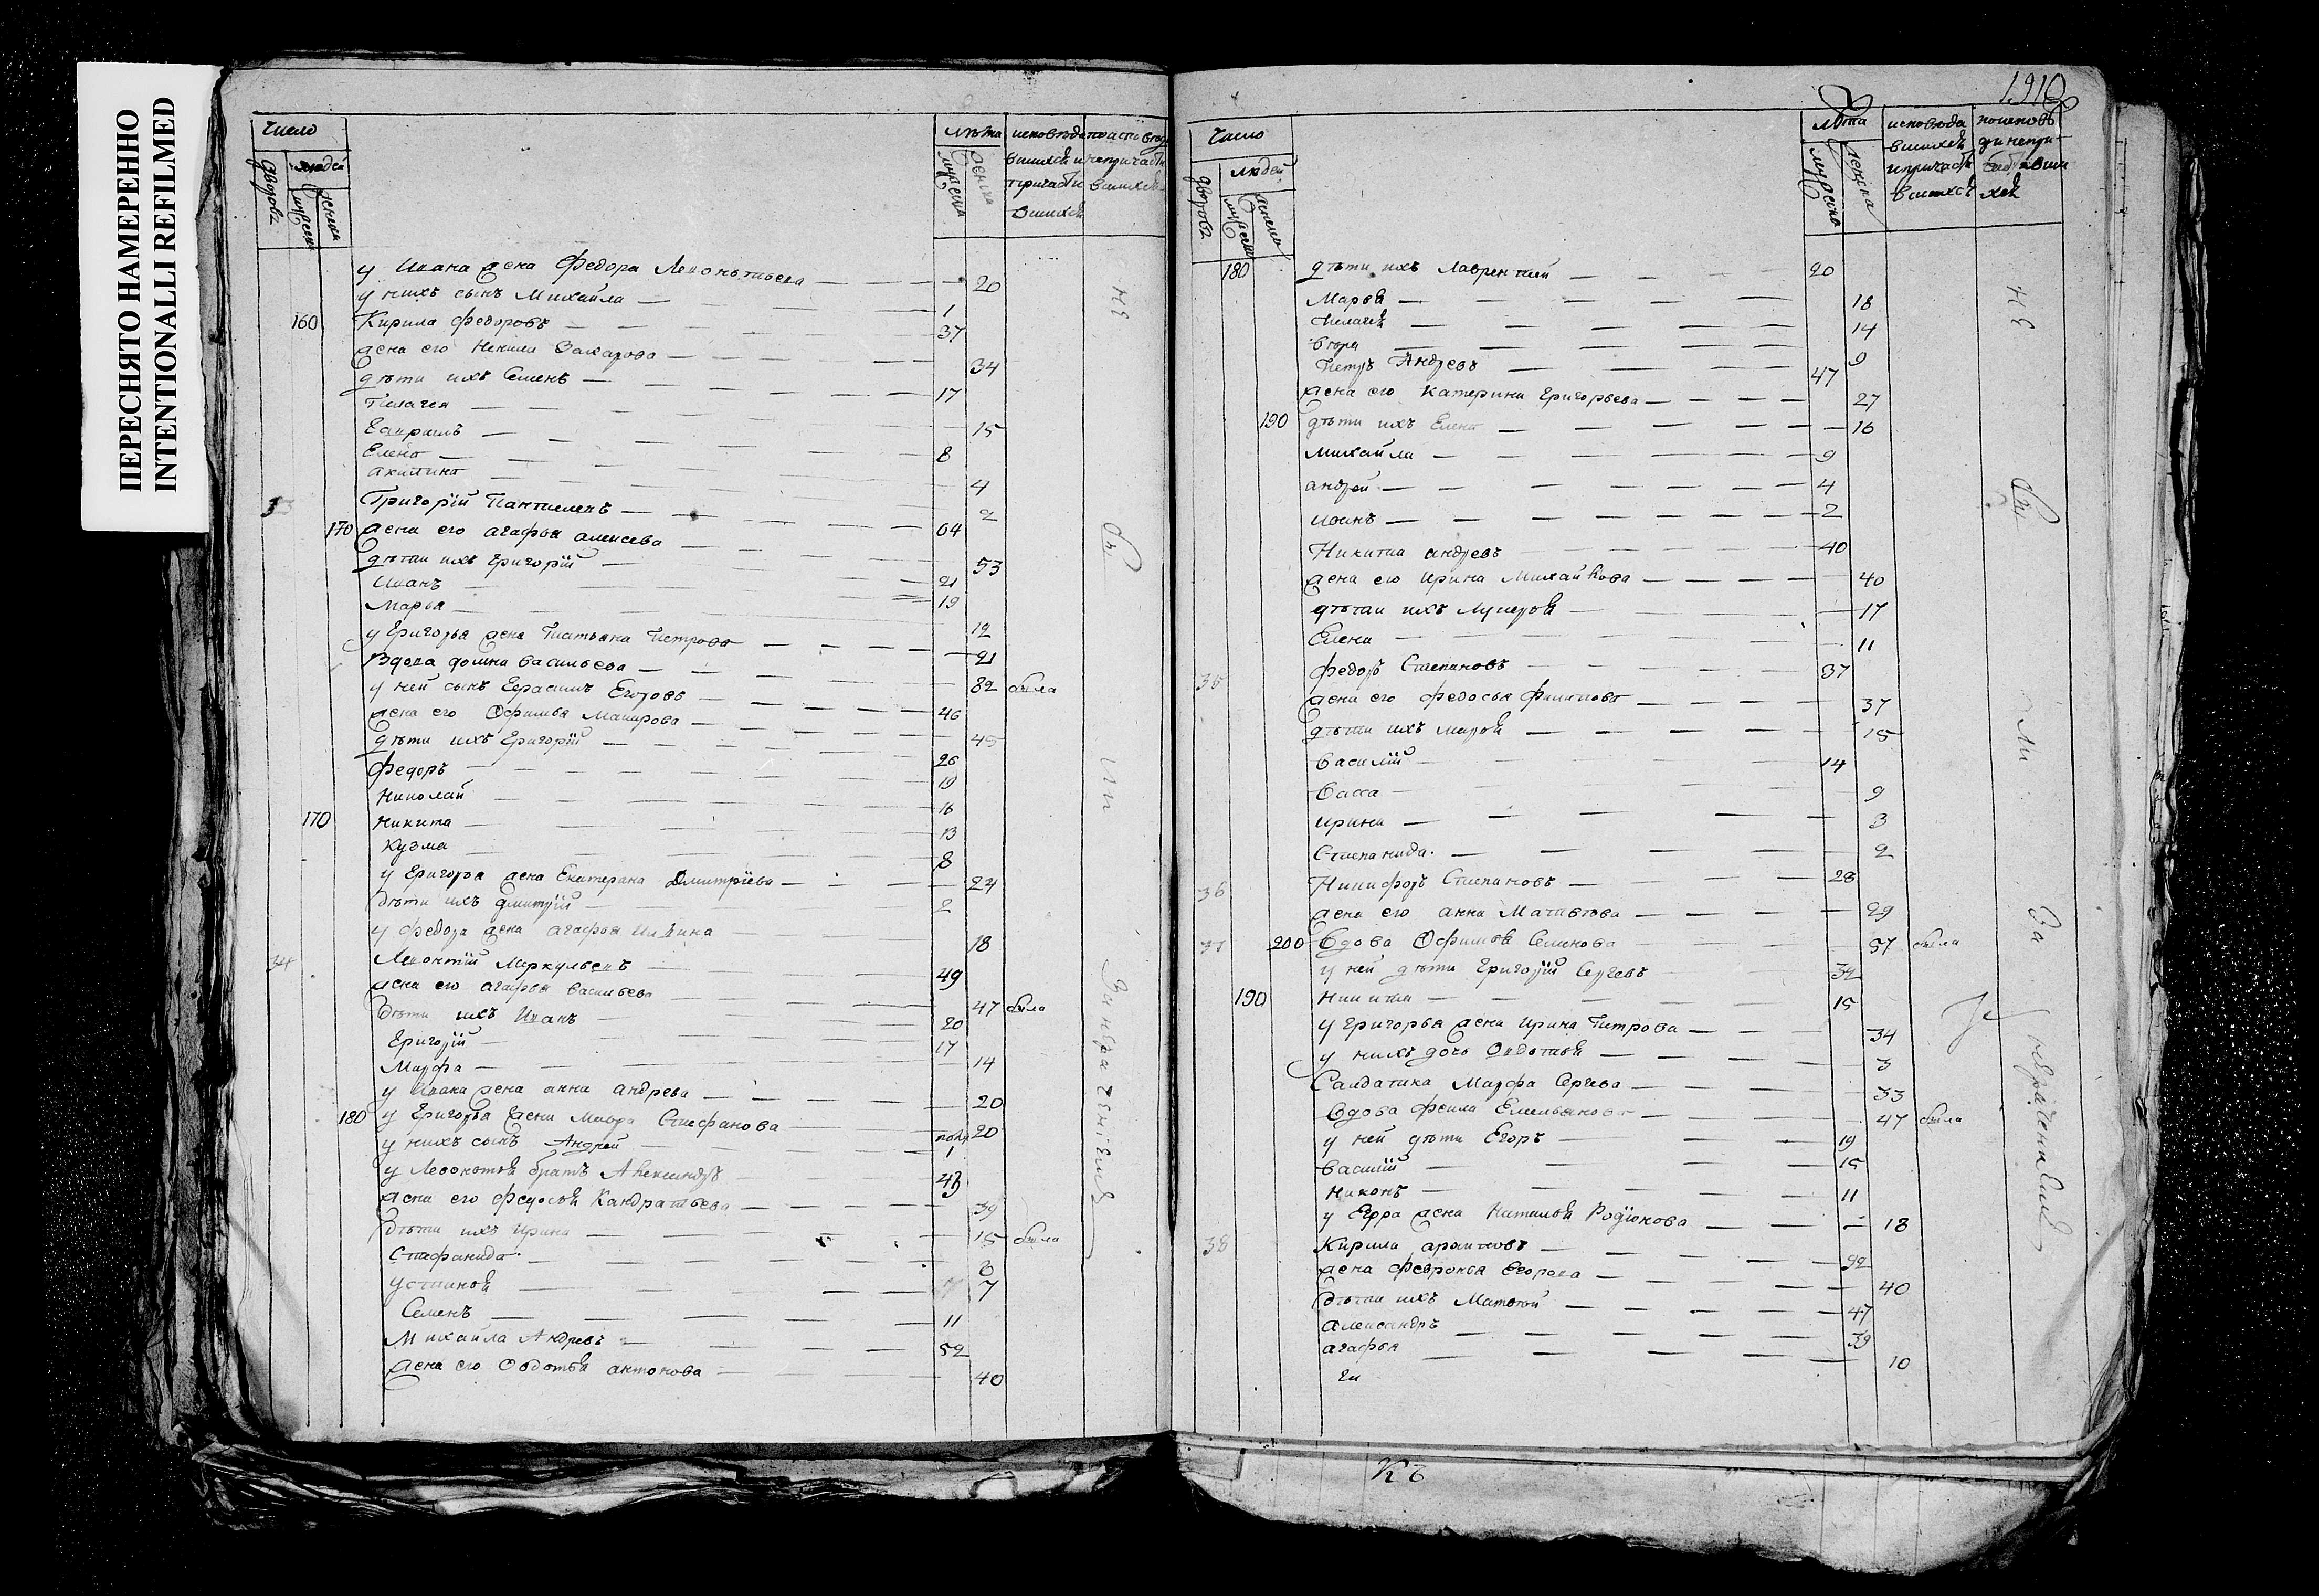 ПЕРЕСНЯТО НАМЕРЕННО
INTENTIONALLI REFILMED
Число
дворовъ
людей
мужеска
женска
лѣта
мужеска
женска
у Ивана жена Федора Левонтьева — 20
у нихъ сынъ Михайла — 1
160 Кирила Федоровъ — 37
жена его Ненила Захарова — 34
дѣти ихъ Семенъ — 17
Пелагея — 15
Гаврилъ — 8
Елена — 4
Акилина — 2
Григорій Пантилеевъ — 64
170 жена его агафья алексева — 53
дѣти ихъ Григорій — 21
Иванъ — 19
Марья — 12
у Григорья жена Татьяна Петрова — 21
Вдова домна васильева — 82 была
у ней сынъ Герасимъ Егоровъ — 46
жена его Офимья Макарова — 45
дѣти ихъ Григорій — 26
Федоръ — 19
Николай — 16
170 Никита — 13
Кузма — 8
у Григорья жена Екатерина Дмитріева — 24
дѣти ихъ дмитрій — 2
у Федора жена агафья Ильина — 18
34 Левонтій Меркульевъ — 49
жена его агафья васильева — 47 была
дѣти ихъ Иванъ — 20
Григорій — 17
Марфа — 14
у Ивана жена анна андрева — 20
180 у Григорья жена Мавра Стефанова — 20
у нихъ сынъ Андрей — 1
у Левонтья братъ Александръ — 43
жена его Федосья Кандратьева — 39
дѣти ихъ Ирина — 15 была
Стефанида — 8
Устинья — 7
Семенъ — 11
Михайла Андревъ — 52
жена его Овдотья антонова — 40
1910
Число
дворовъ
людей
мужеска
женска
лѣта
мужеска
женска
180 дѣти ихъ Лаврентей — 20
Марья — 18
Пелагея — 14
вера — 9
Петръ Андревъ — 47
жена его Катерина Григорьева — 27
190 дѣти ихъ Елена — 16
Михайла — 9
андрей — 4
Иванъ — 2
Никита андревъ — 40
жена его Ирина Михайлова — 40
дѣти ихъ Лукерья — 17
Елена — 11
35 Федоръ Степановъ — 37
жена его Федосья Филипова — 37
дѣти ихъ Марья — 15
Василій — 14
Васса — 9
Ирина — 3
Степанида — 2
36 Никифоръ Степановъ — 28
жена его анна Матвѣева — 29
37 200 Вдова Офимья Семенова — 57 была
у ней дѣти Григорій Сергевъ — 32
190 Никита — 15
у Григорья жена Ирина Петрова — 34
у нихъ дочь Овдотья — 3
Салдатка Марфа Сергева — 33
Вдова Фекла Емельянова — 47 была
у ней дѣти Егоръ — 19
Василій — 15
Никонъ — 11
у Егора жена Наталья Родіонова — 18
38 Кирила архиповъ — 92
жена Февронья Егорова — 40
дѣти ихъ Матвѣй — 47
александръ — 39
агафья — 10